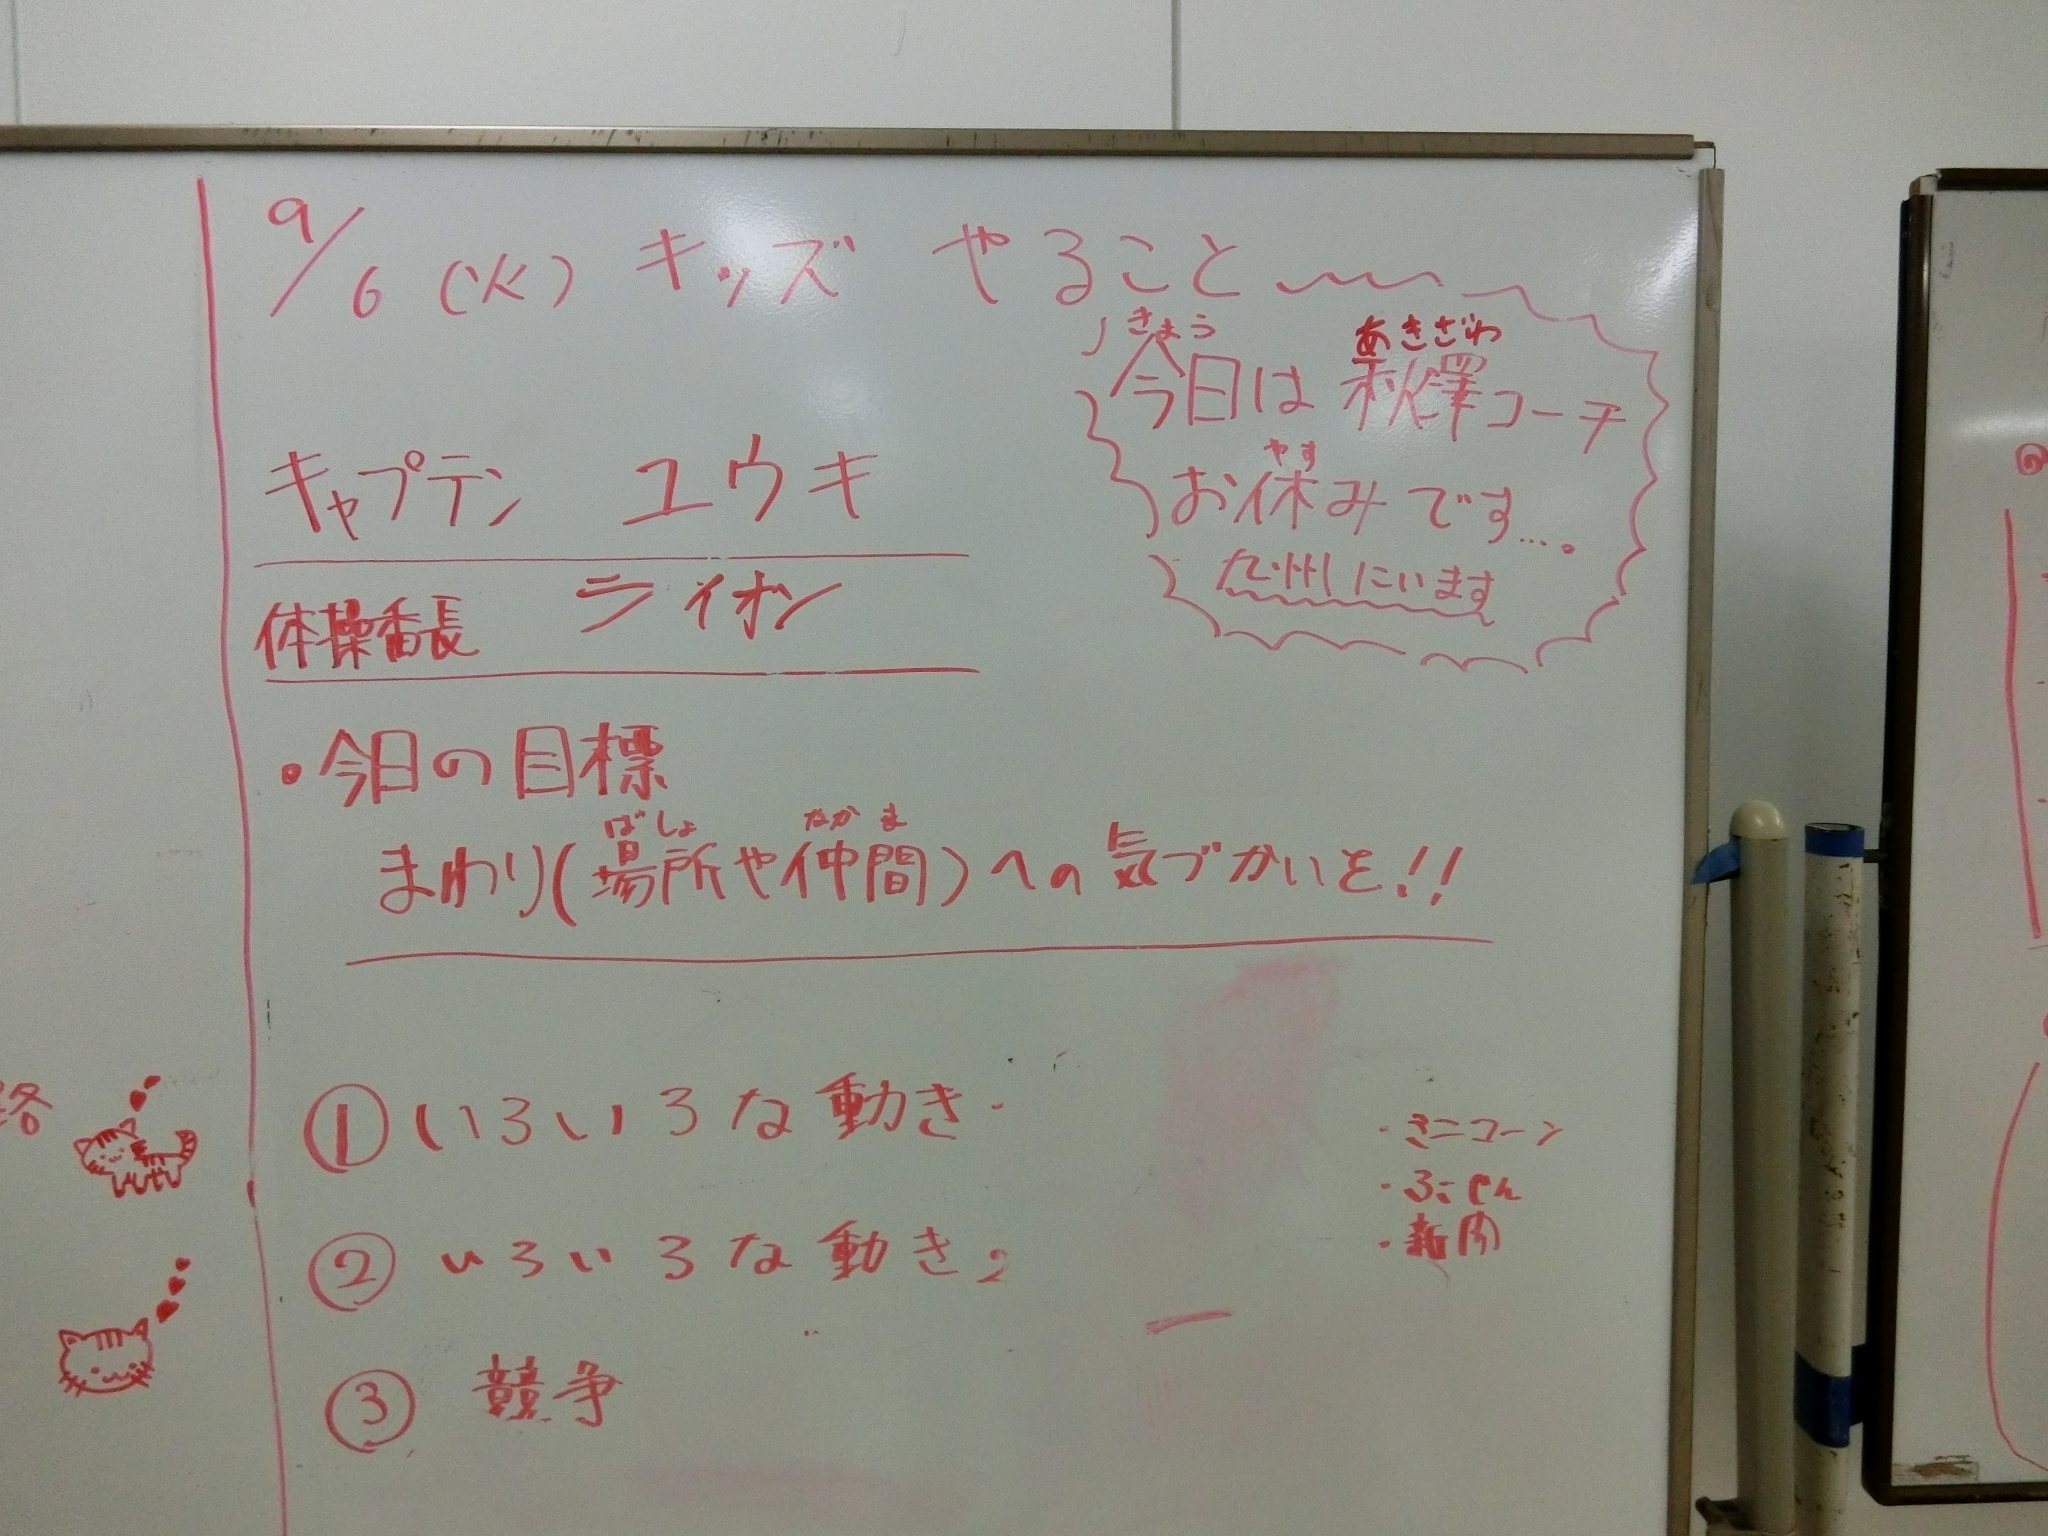 9/6(火) キッズ やること
きょう あきざわ
今日は 秋澤コーチ
やす
お休みです…。
九州にいます
キャプテン ユウキ
体操番長 ライオン
・今日の目標
ばしょ なかま
まわり(場所や仲間)への気づかいを!!
①いろいろな動き
②いろいろな動き2
③ 競争
・ミニコーン
・ふうせん
・新聞